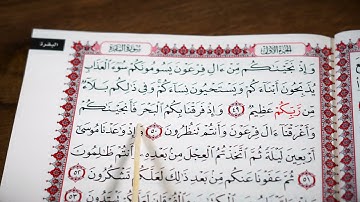 البقرة
سورة البقرة
الجزء الأول
وَإِذْ نَجَّيْنَٰكُم مِّنْ ءَالِ فِرْعَوْنَ يَسُومُونَكُمْ سُوٓءَ ٱلْعَذَابِ
يُذَبِّحُونَ أَبْنَآءَكُمْ وَيَسْتَحْيُونَ نِسَآءَكُمْ وَفِى ذَٰلِكُم بَلَآءٌ
مِّن رَّبِّكُمْ عَظِيمٌ ٤٩ وَإِذْ فَرَقْنَا بِكُمُ ٱلْبَحْرَ فَأَنجَيْنَٰكُمْ
وَأَغْرَقْنَآ ءَالَ فِرْعَوْنَ وَأَنتُمْ تَنظُرُونَ ٥٠ وَإِذْ وَٰعَدْنَا مُوسَىٰٓ
أَرْبَعِينَ لَيْلَةً ثُمَّ ٱتَّخَذْتُمُ ٱلْعِجْلَ مِنۢ بَعْدِهِۦ وَأَنتُمْ ظَٰلِمُونَ
٥١ ثُمَّ عَفَوْنَا عَنكُم مِّنۢ بَعْدِ ذَٰلِكَ لَعَلَّكُمْ تَشْكُرُونَ ٥٢